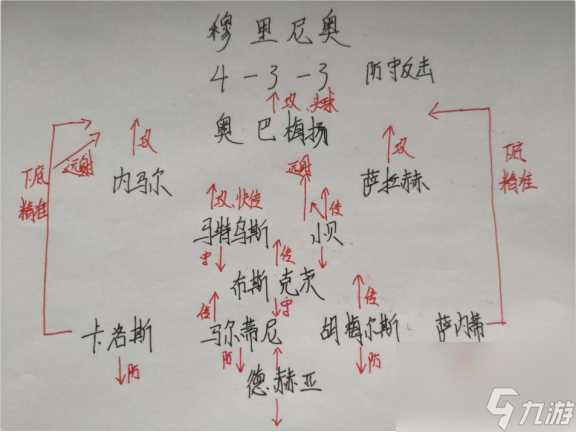 穆里尼奥
4-3-3 防守反击
攻、头球
奥巴梅扬
攻
攻
远射
远射
下底
精准
下底
精准
内马尔
萨拉赫
攻、快传
传
马特乌斯
小贝
守
传
布斯克茨
传
守
传
卡洛斯
马尔蒂尼
胡梅尔斯
萨内蒂
防
防
防
德赫亚
九游